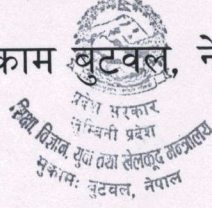 काम बुटवल, ने
प्रदेश सरकार
लुम्बिनी प्रदेश
शिक्षा, विज्ञान, युवा तथा खेलकूद मन्त्रालय
मुकामः बुटवल, नेपाल